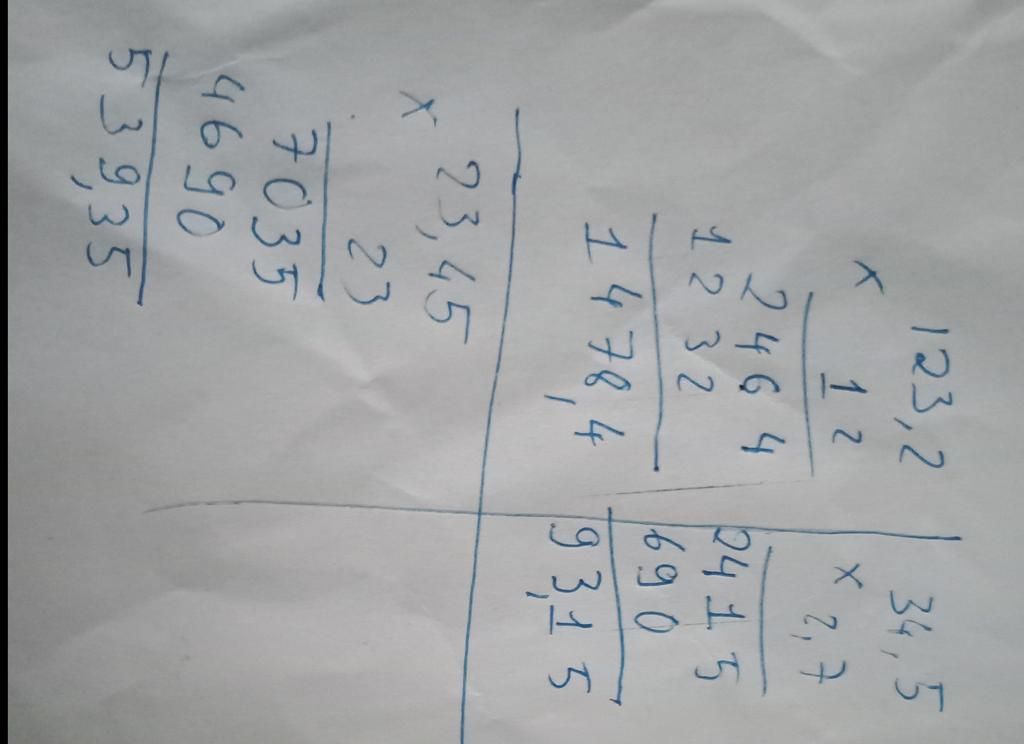 123,2
x 12
2464
1232
1478,4
34,5
x 2,7
2415
690
93,15
23,45
x 23
7035
4690
539,35